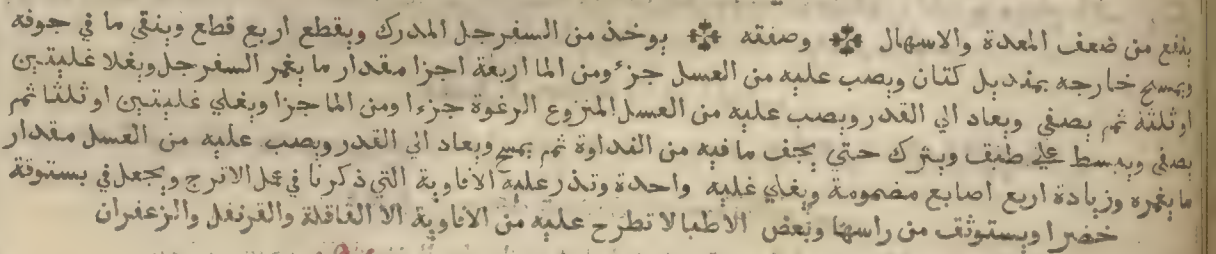 ينفع من ضعف المعدة والاسهال وصفته يوخذ من السفرجل المدرك ويقطع اربع قطع وينقي ما في جوفه
ويمسح خارجه بمنديل كتان ويصب عليه من العسل جزء ومن الما اربعة اجزا مقدار ما يغمر السفرجل ويغلا غليتين
او ثلثة ثم يصفي ويعاد الي القدر ويصب عليه من العسل المنزوع الرغوة جزءا ومن الما جزا ويغلي غليتين او ثلثا ثم
يصفي ويبسط علي طبق ويترك حتي يجف ما فيه من النداوة ثم يمسح ويعاد الي القدر ويصب عليه من العسل مقدار
ما يغمره وزيادة اربع اصابع مضمومة ويغلي غلية واحدة وتذر عليه الافاوية التي ذكرنا في عمل الاترج ويجعل في بستوقة
خضرا ويستوثق من راسها وبعض الاطبا لا تطرح عليه من الافاوية الا القاقلة والقرنفل والزعفران